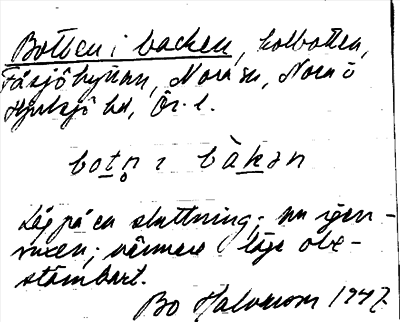 Botten i backen, kolbotten,
Fåsjöhyttan, Nora sn, Nora o
Hjulsjö hd, Ör. l.
botn i bàkən
Låg på en sluttning; nu igen-
vuxen; närmare läge obe-
stämbart.
Bo Halvarson 1947.